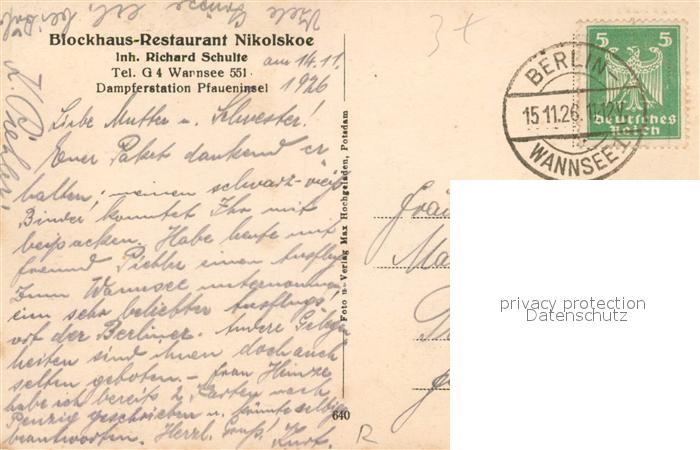 Viele Grüsse
Blockhaus-Restaurant Nikolskoe
Inh. Richard Schulte
Tel. G 4 Wannsee 551
Dampferstation Pfaueninsel
am 14.11.
1926
Liebe Mutter u. Schwester!
Euer Paket dankend er
halten; meinen schwarz-weiß
Binder konntet Ihr mit
beipacken. Habe heute mit
Freund einen Ausflug
zum Wannsee unternommen,
ein sehr beliebter Ausflugs,
ort der Berliner. Andere Gelegen
heiten sind ihnen doch auch
selten geboten. – Frau Heinze
habe ich bereits 2 Karten nach
Penzig geschrieben u. könnte selbige
beantworten. Herzl. Gruß! Kurt.
Foto u. Verlag Max Hochgeladen, Potsdam
640
3 x
BERLIN-
15.11.26. 11-12V.
WANNSEE 1
5 5
Deutsches
Reich
R
privacy protection
Datenschutz